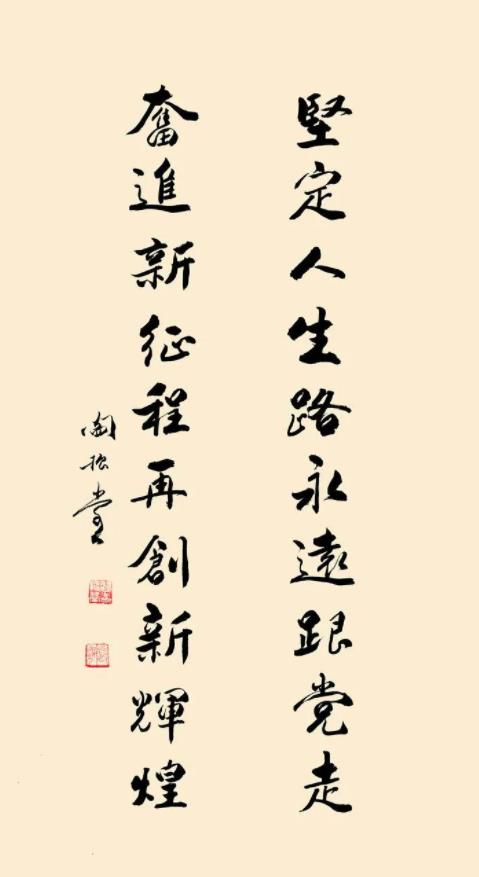 堅定人生路永遠跟党走
奮進新征程再創新輝煌